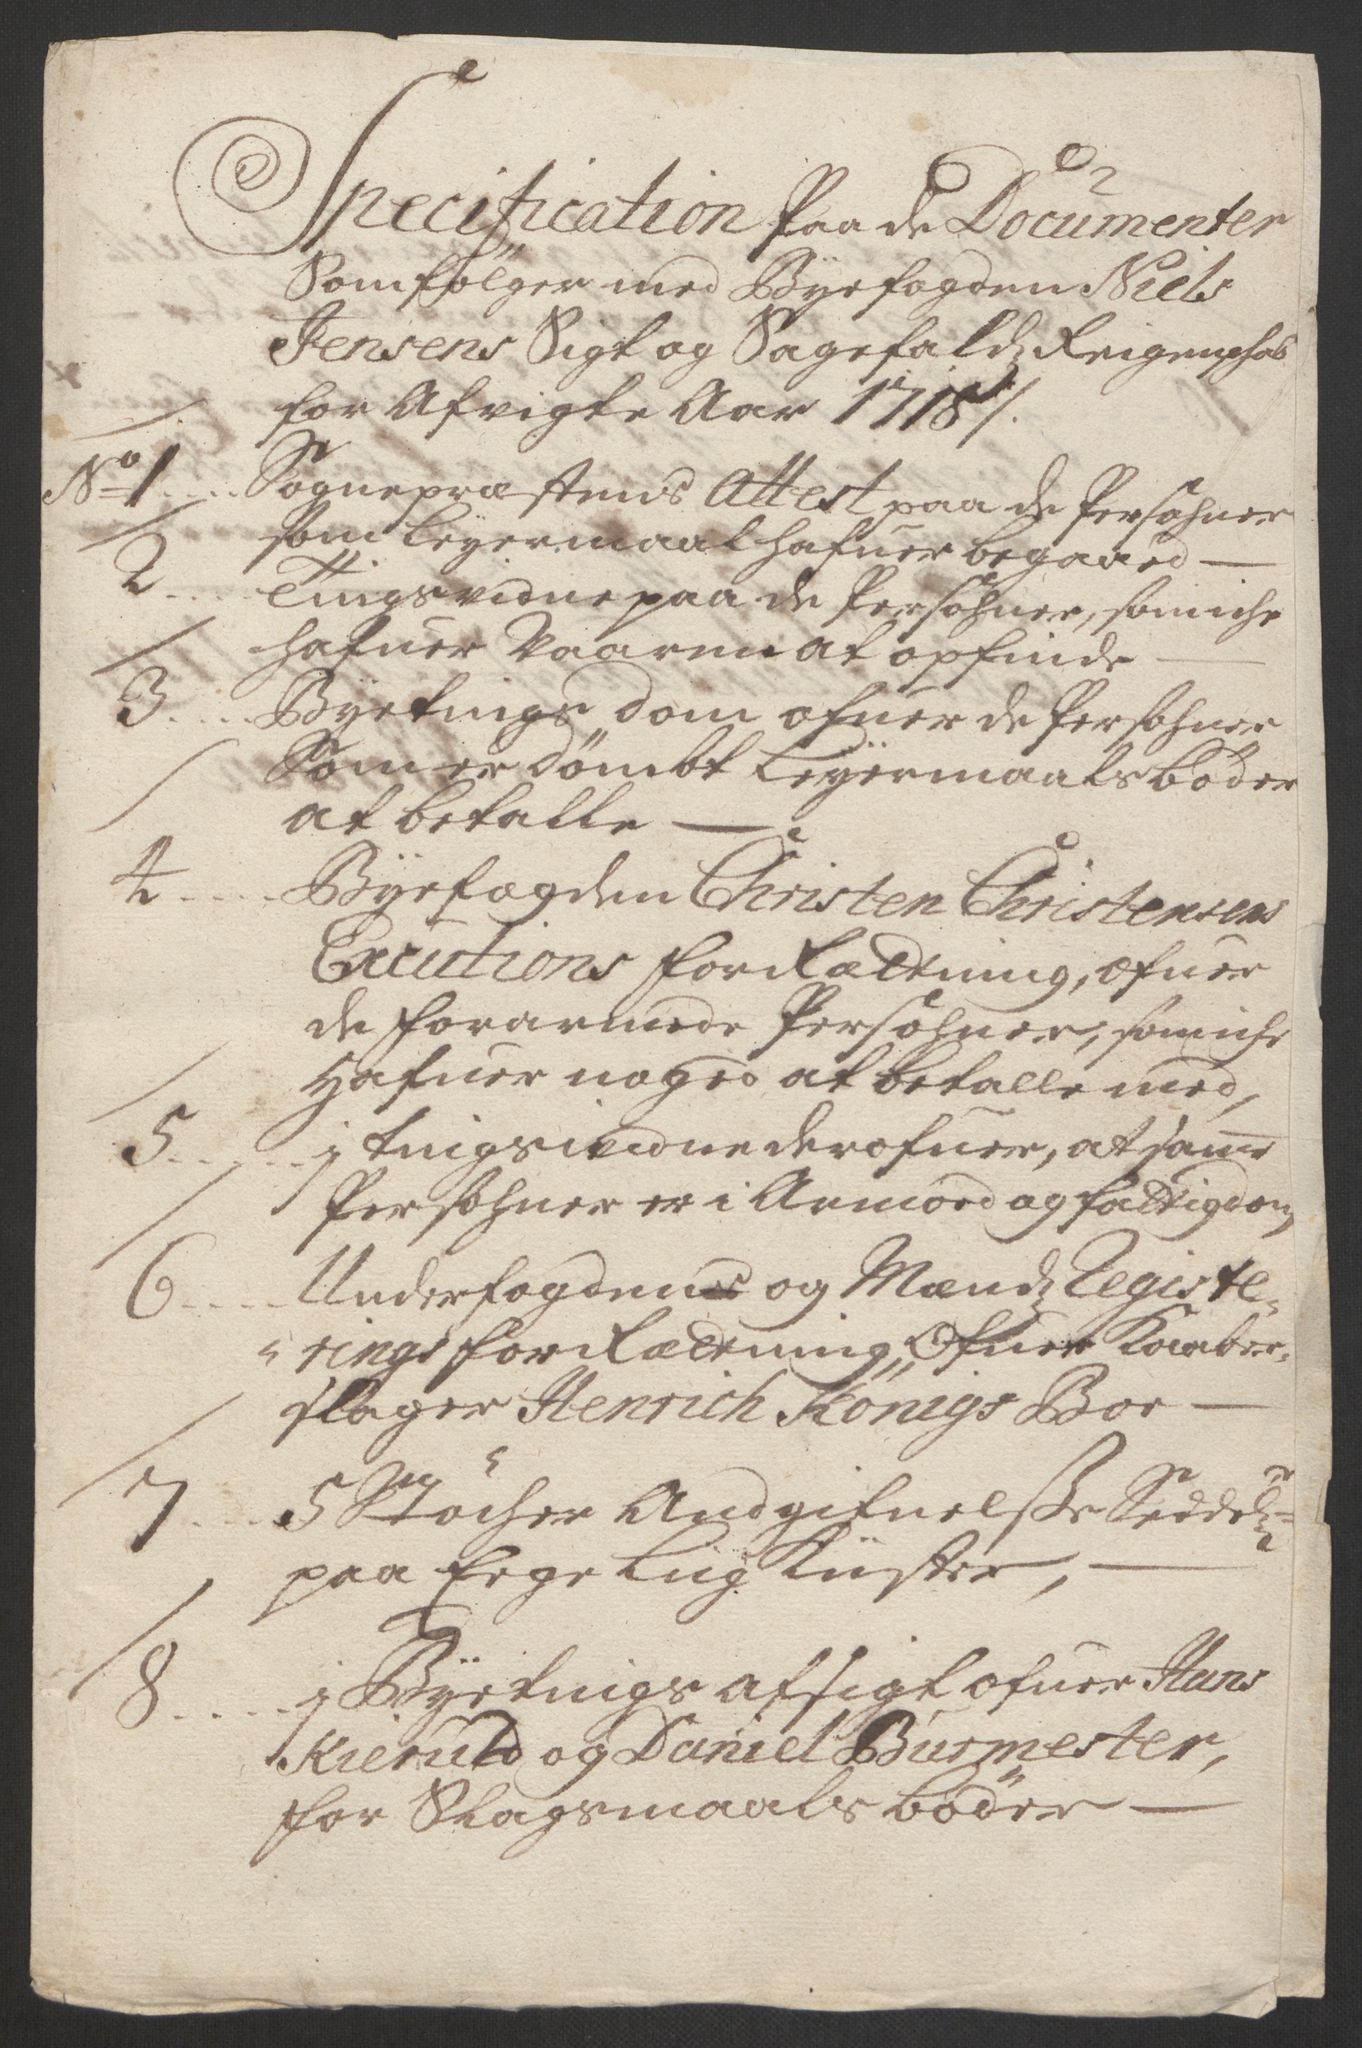 Specification Paa de Documenter
Som følger med Byefogden Niels
Jensens Sigt og Sagefaldz Reigenschab
for Afvigte Aar 1718 /.
No 1 .... Sognepræstens Attest paa de Persohner
som Leyermaal hafuer begaaed —
2 .... Tingsvidne paa de Persohner, som iche
hafuer Vaaren at opfinde —
3 .... Byetings dom ofuer de Persohner
Som er dømbt Leyermaals bøder
at betalle —
4 .... Byefogden Christen Christensens
Excutions forRættning, ofuer
de forarmede Persohner, som iche
Hafuer noged at betalle med,
5 .... j tingsvidne derofuer, at same
Persohner er i Armoed og fattigdom
6 .... Underfogdens og Mændz Registe-
rings forRættning, Ofuer Kaaber-
slager Henrich Königs Boe —
7 .... 5 Støcher Andgifuelsse Seddeler
paa Ege Lug Küster, —
8 .... j Byetings afsigt ofuer Hans
Kieruld og Daniel Burmester,
for Slagsmaals bøder —